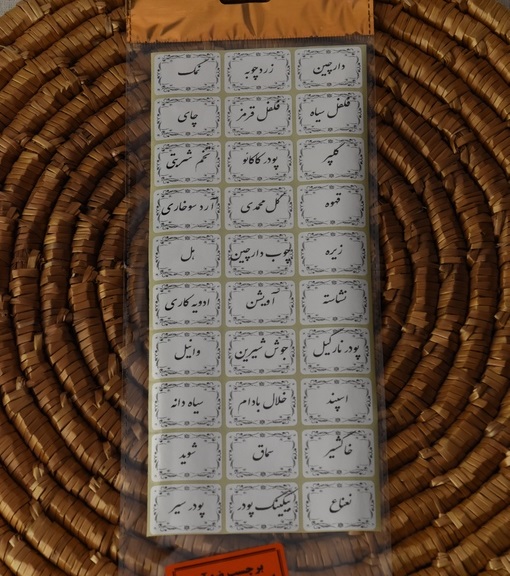 دارچین زردچوبه نمک
فلفل سیاه فلفل قرمز چای
گلپر پودر کاکائو تخم شربتی
قهوه گل محمدی آرد سوخاری
زیره چوب دارچین هل
نشاسته آویشن ادویه کاری
پودر نارگیل جوش شیرین وانیل
اسپند خلال بادام سیاه دانه
خاکشیر سماق شوید
نعناع بیکینگ پودر پودر سیر